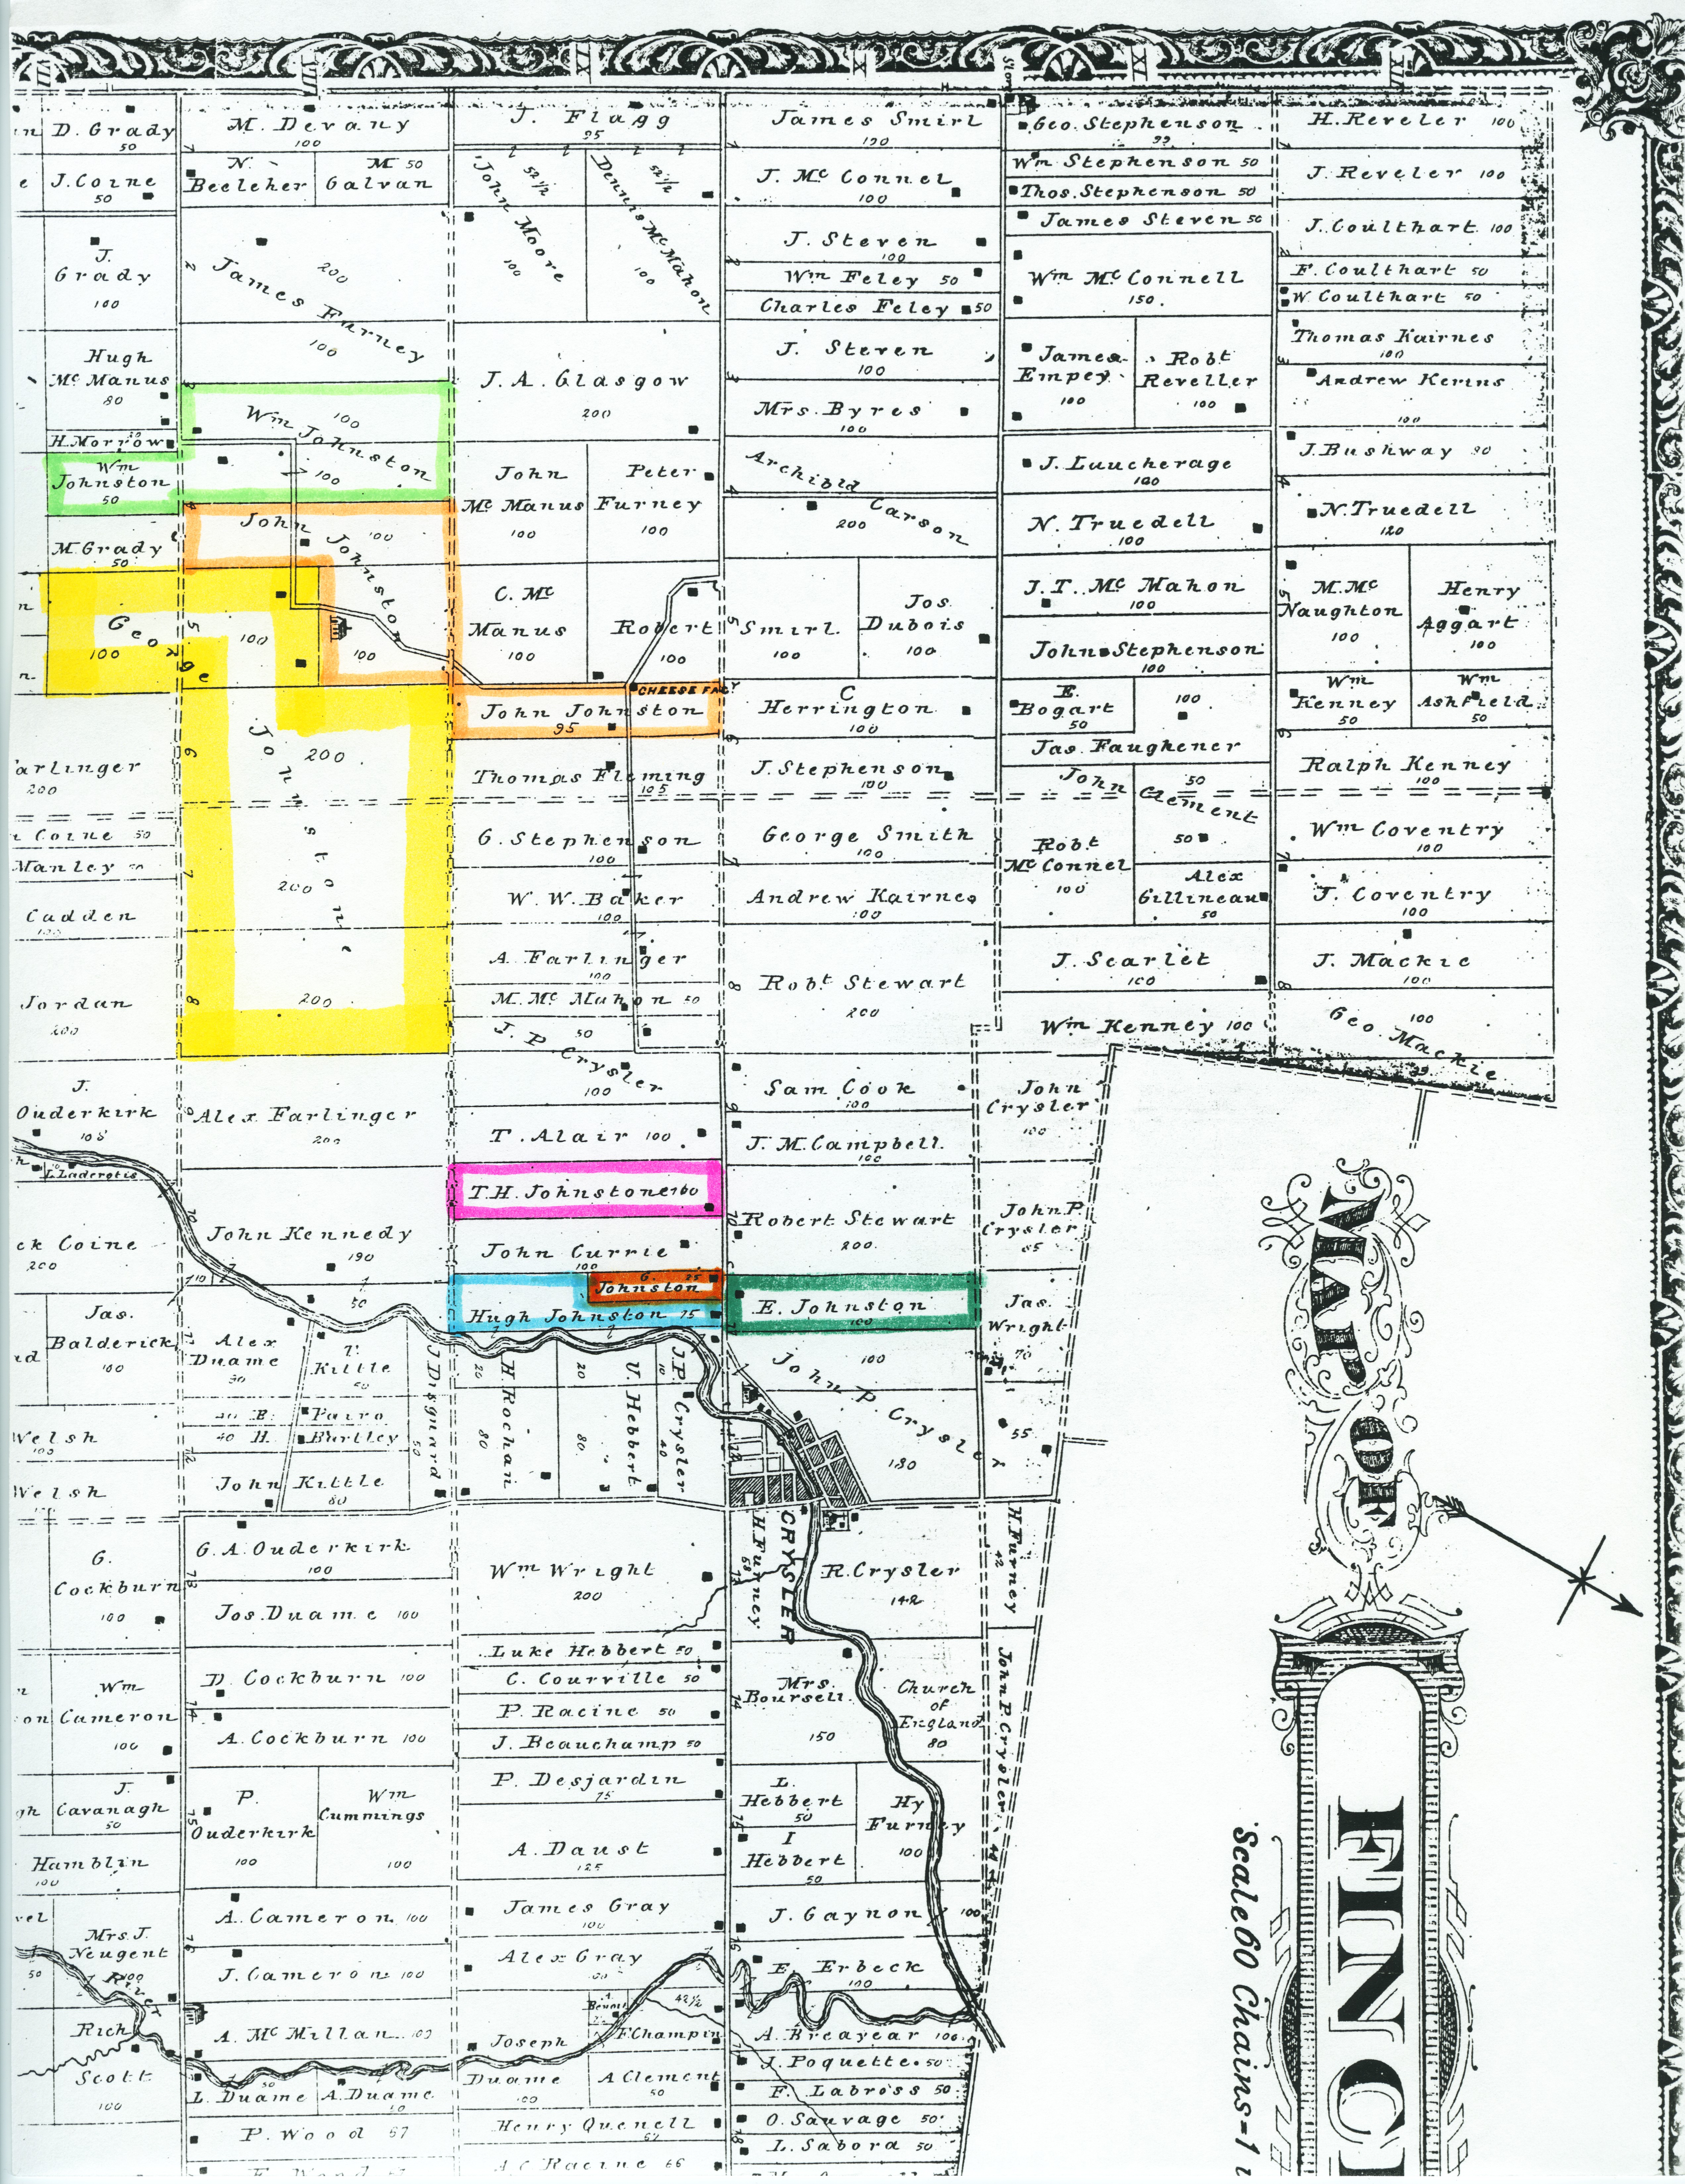 VII
VIII
IX
X
XI
XII
Store
D. Grady
50
M. Devany
100
J. Flagg
95
James Smirl
190
Geo. Stephenson
99
H. Reveler 100
J. Coine
50
N.
Beelcher
M 50
Galvan
John Moore
52 1/2
100
Dennis McMahon
52 1/2
100
J. Mc Connel
100
Wm Stephenson 50
Thos. Stephenson 50
James Steven 50
J. Reveler 100
J.
Grady
100
James Furney
200
100
J. Steven
100
Wm Feley 50
Charles Feley 50
Wm Mc Connell
150
J. Coulthart 100
F. Coulthart 50
W. Coulthart 50
Hugh
Mc Manus
80
H. Morrow
J. A. Glasgow
200
J. Steven
100
Mrs. Byres
100
James
Empey
100
Robt
Reveller
100
Thomas Kairnes
100
Andrew Kerins
100
Wm Johnston
100
100
Wm
Johnston
50
John
Mc Manus
100
Peter
Furney
100
Archibld Carson
200
J. Laucherage
100
N. Truedell
100
J. Bushway 80
N. Truedell
120
M. Grady
50
John Johnston
100
100
C. Mc
Manus
100
Robert Smirl
100
100
Jos.
Dubois
100
J. T. Mc Mahon
100
John Stephenson
100
M. Mc
Naughton
100
Henry
Aggart
100
George Johnstone
100
100
200
200
200
CHEESE FACY
John Johnston
95
C
Herrington
100
E.
Bogart
50
100
Wm
Kenney
50
Wm
Ashfield
50
arlinger
200
Thomas Fleming
105
J. Stephenson
100
Jas. Faughener
John Clement
50
50
Ralph Kenney
100
Coine 50
Manley 50
G. Stephenson
100
George Smith
100
Robt
Mc Connel
100
Wm Coventry
100
Cadden
100
W. W. Baker
100
Andrew Kairnes
100
Alex
Gillineau
50
J. Coventry
100
Jordan
200
A. Farlinger
100
M. Mc Mahon 50
J. P. Crysler
50
100
Robt Stewart
200
J. Scarlet
100
J. Mackie
100
Wm Kenney 100
Geo. Mackie
100
39
J.
Ouderkirk
108
Alex Farlinger
200
T. Alair 100
Sam Cook
100
J. M. Campbell
100
John
Crysler
100
L. Laderotis
T.H. Johnstone 100
Robert Stewart
200
John P.
Crysler
85
ck Coine
200
John Kennedy
190
10
50
John Currie
100
G. 25
Johnston
Hugh Johnston 75
E. Johnston
100
Jas.
Wright
70
Jas.
Balderick
100
Alex
Duame
90
T.
Kittle
50
J. Disguard
50
H. Rochan
20
80
U. Hebbert
20
80
J.P. Crysler
10
40
John P. Crysler
100
180
55
Welsh
100
Welsh
40 E. Pairo
40 H. Bartley
John Kittle
80
CRYSLER
G.
Cockburn
100
G. A. Ouderkirk
100
Wm Wright
200
H. Furney
58
R. Crysler
142
H. Furney
42
Jos. Duame 100
Luke Hebbert 50
C. Courville 50
P. Racine 50
J. Beauchamp 50
John P. Crysler
Wm
Cameron
100
D. Cockburn 100
A. Cockburn 100
Mrs.
Boursell
150
Church
of
England
80
J.
Cavanagh
50
P.
Ouderkirk
100
Wm
Cummings
100
P. Desjardin
75
A. Daust
125
L.
Hebbert
50
I
Hebbert
50
Hy
Furney
100
Hamblin
100
Mrs. J.
Neugent
100
50
River
A. Cameron 100
James Gray
100
J. Gaynon 100
J. Cameron 100
Alex Gray
E. Erbeck
100
Rich
Scott
100
A. Mc Millan 100
Joseph
Duame
100
42 1/2
F. Champin
A. Breayear 100
L. Duame
50
A. Duame
A Clement
50
J. Poquette 50
F. Labross 50
P. Wood 67
Henry Quenell
67
O. Sauvage 50
L. Sabora 50
A C Racine 66
MAP OF
FINC
Scale 60 Chains=1